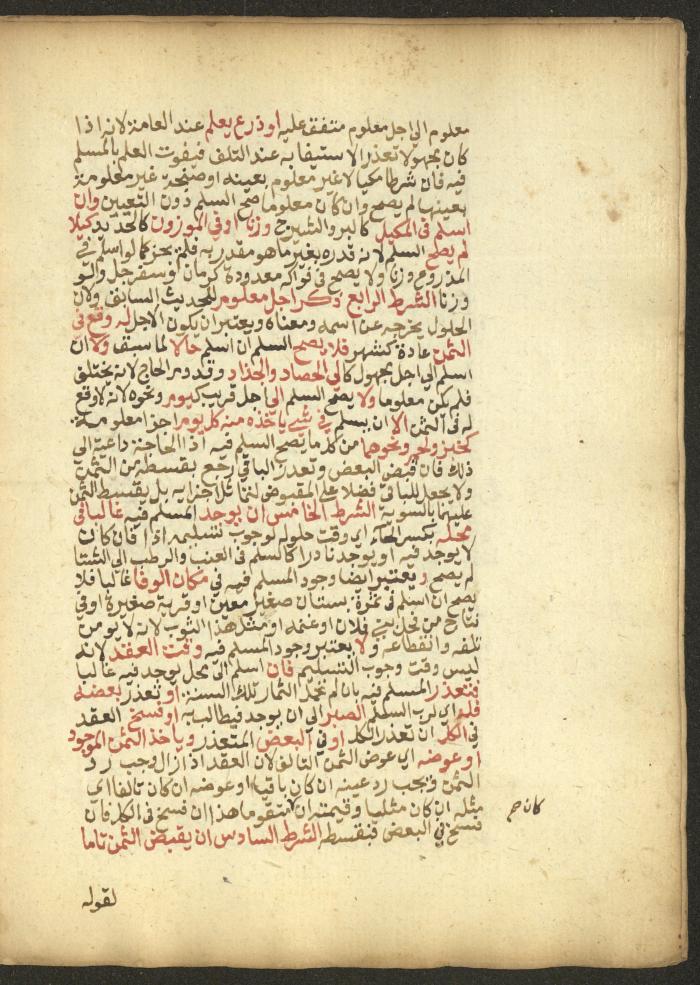 معلوم الي اجل معلوم متفق عليه او ذرع يعلم عند العامة لانه اذا
كان مجهولا تعذر الاستيفا به عند التلف فيفوت العلم بالمسلم
فيه فان شرطا مكيالا غير معلوم بعينه او صنجة غير معلومة
بعينها لم يصح وان كان معلوما صح السلم دون التعيين وان
اسلم في المكيل كالبر والشيرج وزنا او في الموزون كالحديد كيلا
لم يصح السلم لانه قدره بغير ما هو مقدر به فلم يجز كما لو اسلم في
المذروع وزنا ولا يصح في فواكه معدودة كرمان وسفرجل ولو
وزنا الشرط الرابع ذكر اجل معلوم للحديث السابق ولان
الحلول يخرجه عن اسمه ومعناه ويعتبر ان يكون الاجل له وقع في
الثمن عادة كشهر فلا يصح السلم ان اسلم حالا لما سبق ولا ان
اسلم الي اجل مجهول كالي الحصاد والجذاذ وقدوم الحاج لانه يختلف
فلم يكن معلوما ولا يصح السلم الي اجل قريب كيوم ونحوه لانه لا وقع
له في الثمن الا ان يسلم في شي ياخذه منه كل يوم اجزا معلومة
كخبز ولحم ونحوهما من كل ما يصح السلم فيه اذ الحاجة داعية الي
ذلك فان قبض البعض وتعذر الباقي رجع بقسطه من الثمن
ولا يجعل للباقي فضلا على المقبوض لتماثل اجزايه بل يقسط الثمن
عليهما بالسوية الشرط الخامس ان يوجد المسلم فيه غالبا في
محله بكسر الحاء اي وقت حلوله لوجوب تسليمه اذا فان كان
لا يوجد فيه او يوجد نادرا كالسلم في العنب والرطب الي الشتا
لم يصح ويعتبر ايضا وجود المسلم فيه في مكان الوفا غالبا فلا
يصح ان اسلم في ثمرة بستان صغير معين او قرية صغيرة او في
نتاج من فحل بني فلان او غنمه او مثل هذا الثوب لانه لا يومن
تلفه وانقطاعه ولا يعتبر وجود المسلم فيه وقت العقد لانه
ليس وقت وجوب التسليم فان اسلم الي محل يوجد فيه غالبا
فتعذر المسلم فيه بان لم تحمل الثمار تلك السنة او تعذر بعضه
فله اي لرب السلم الصبر الي ان يوجد فيطالب به او فسخ العقد
في الكل ان تعذر الكل او في البعض المتعذر وياخذ الثمن الموجود
او عوضه اي عوض الثمن التالف لان العقد اذا زال وجب رد
الثمن ويجب رد عينه ان كان باقيا او عوضه ان كان تالفا اي
مثله ان كان مثليا وقيمته ان متقوما هذا ان فسخ في الكل فان
كان صح
فسخ في البعض فبقسطه الشرط السادس ان يقبض الثمن تاما
لقوله